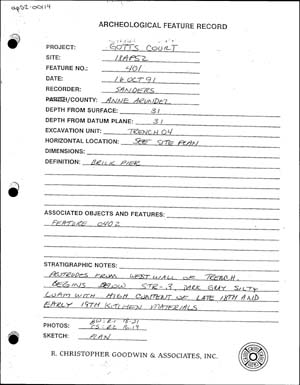 ap52-00119
ARCHEOLOGICAL FEATURE RECORD
PROJECT: GOTTS COURT
SITE: 18AP52
FEATURE NO.: 401
DATE: 16 OCT 91
RECORDER: SANDERS
PARISH/COUNTY: ANNE ARUNDEL
DEPTH FROM SURFACE: 31
DEPTH FROM DATUM PLANE: 31
EXCAVATION UNIT: TRENCH 04
HORIZONTAL LOCATION: SEE SITE PLAN
DIMENSIONS:
DEFINITION: BRICK PIER
ASSOCIATED OBJECTS AND FEATURES:
FEATURE 0402
STRATIGRAPHIC NOTES:
PROTRUDES FROM WEST WALL OF TRENCH.
BEGINS BELOW STR-3, DARK GRAY SILTY
LOAM WITH HIGH CONTENT OF LATE 18TH AND
EARLY 19TH KITCHEN MATERIALS
PHOTOS:
SKETCH: PLAN
R. CHRISTOPHER GOODWIN & ASSOCIATES, INC.